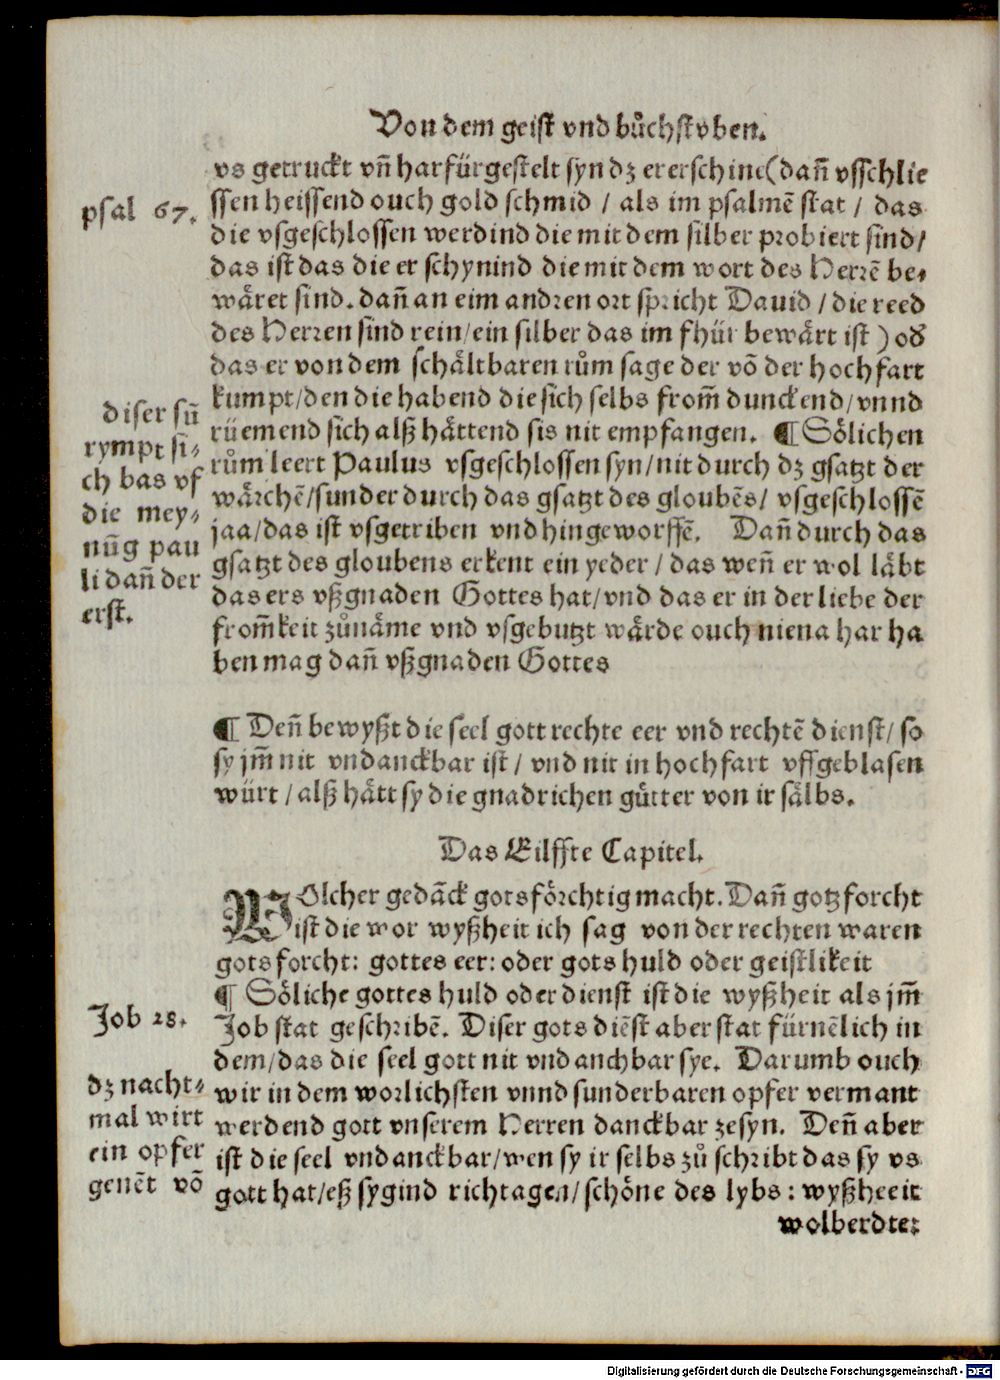 Von dem geist vnd bůchstoben.
vs getruckt vn̄ harfürgestelt syn dz er erschine(dan̄ vsschlie
ssen heissend ouch gold schmid / als im psalmē stat / das
die vsgeschlossen werdind die mit dem silber probiert sind/
das ist das die er schynind die mit dem wort des Herrē be⸗
wäret sind. dan̄ an eim andren ort spricht Dauid / die reed
des Herren sind rein/ein silber das im fhür bewärt ist ) od
das er von dem schältbaren rům sage der vō der hochfart
kumpt/den die habend die sich selbs from̄ dunckend/vnnd
rüemend sich alß hättend sis nit empfangen. ¶ Sölichen
rům leert Paulus vsgeschlossen syn/nit durch dz gsatzt der
wärchē/sunder durch das gsatzt des gloubēs/ vsgeschlossē
jaa/das ist vsgetriben vnd hingeworffē. Dan̄ durch das
gsatzt des gloubens erkent ein yeder / das wen̄ er wol läbt
das ers vßgnaden Gottes hat/vnd das er in der liebe der
from̄keit zůnäme vnd vsgebutzt wärde ouch niena har ha
ben mag dan̄ vßgnaden Gottes
psal 67.
diser sū
rympt si⸗
ch bas vf
die mey⸗
nūg pau
li dan̄ der
erst.
¶ Den̄ bewyßt die seel gott rechte eer vnd rechtē dienst/ so
sy jm̄ nit vndanckbar ist / vnd nit in hochfart vffgeblasen
würt / alß hätt sy die gnadrichen gůtter von ir sälbs.
Das Eilffte Capitel.
WOlcher gedāck gotsförchtig macht. Dan̄ gotzforcht
ist die wor wyßheit ich sag von der rechten waren
gotsforcht: gottes eer: oder gots huld oder geistlikeit
¶ Söliche gottes huld oder dienst ist die wyßheit als jm̄
Job stat geschribē. Diser gots diēst aber stat fürnēlich in
dem/das die seel gott nit vndanchbar sye. Darumb ouch
wir in dem worlichsten vnnd sunderbaren opfer vermant
werdend gott vnserem Herren danckbar zesyn. Den̄ aber
ist die seel vndanckbar/wen sy ir selbs zů schribt das sy vs
gott hat/eß sygind richtagen/schöne des lybs : wyßheeit
wolberdte:
Job 28.
dz nacht⸗
mal wirt
ein opfer
genēt vō
Digitalisierung gefördert durch die Deutsche Forschungsgemeinschaft - DFG